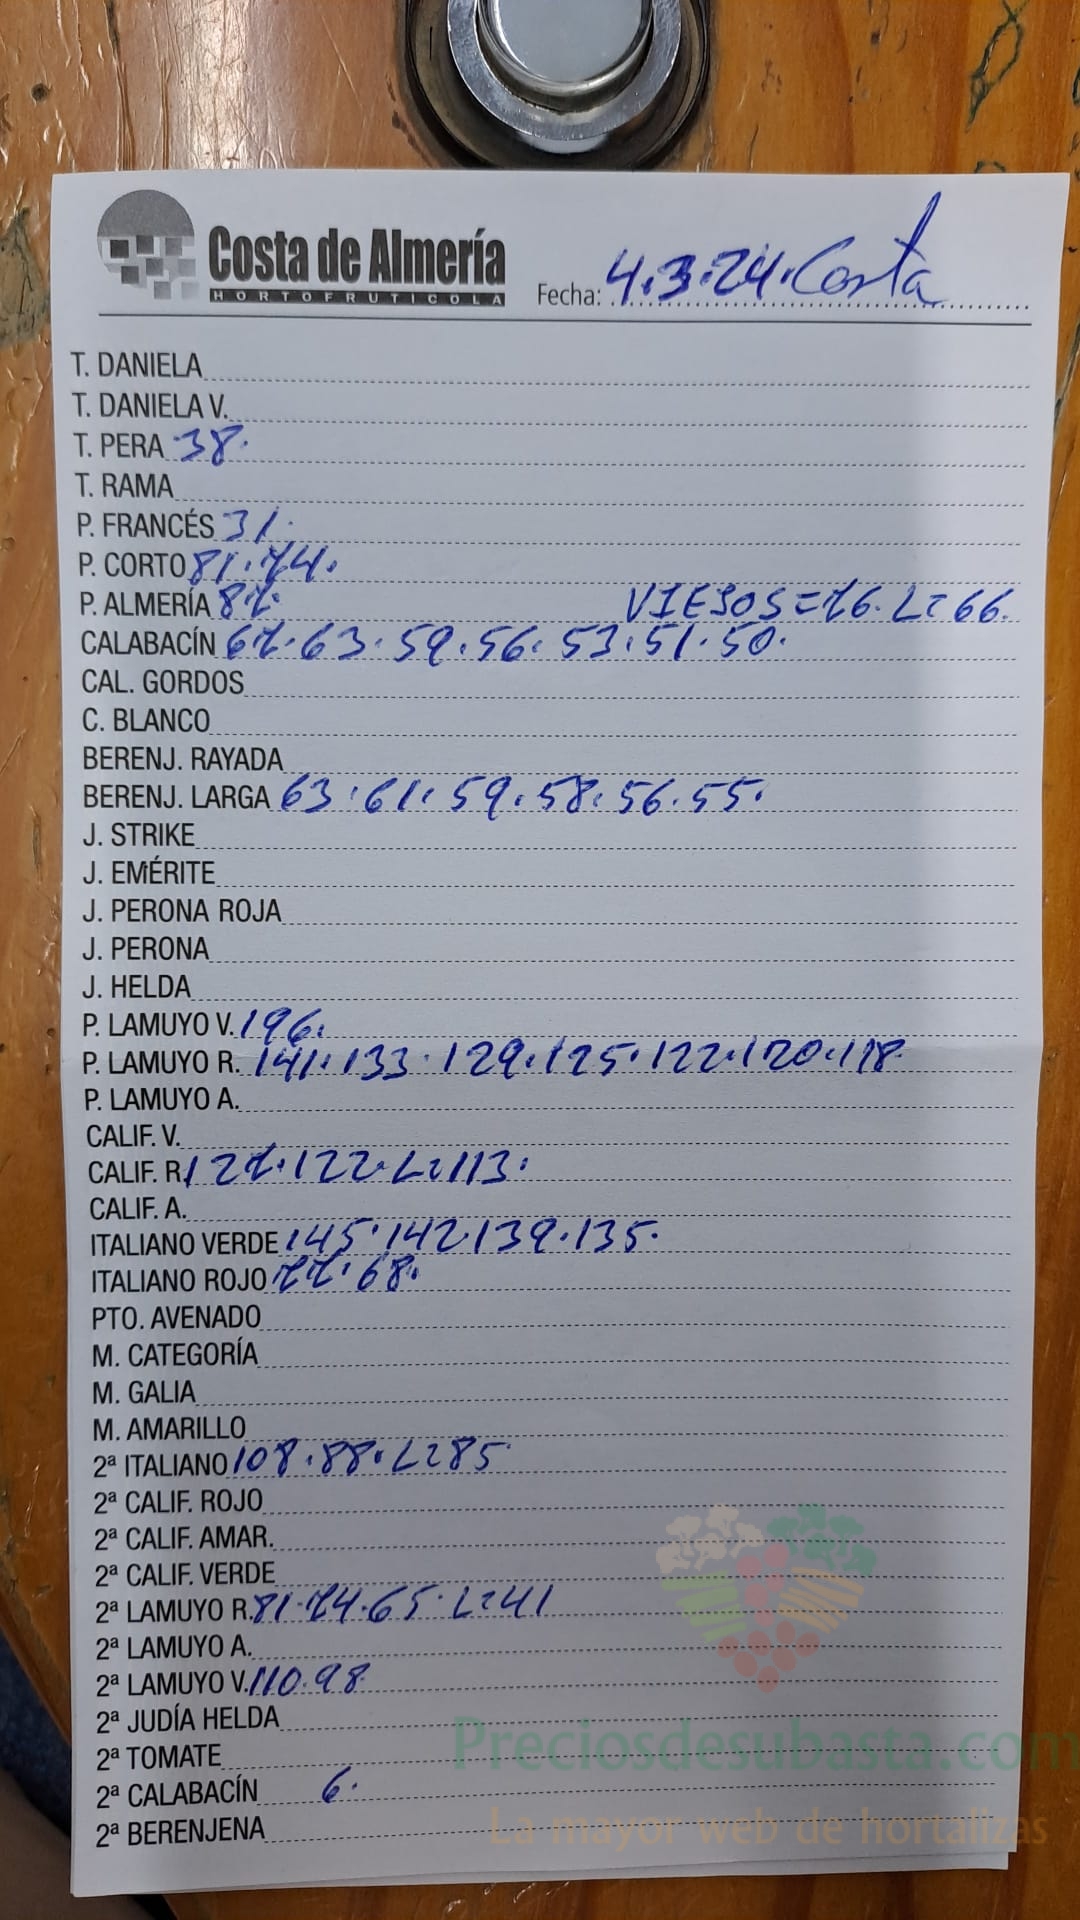 Costa de Almería
HORTOFRUTICOLA
Fecha: 4.3.24. Costa
T. DANIELA
T. DANIELA V.
T. PERA 38.
T. RAMA
P. FRANCÉS 31.
P. CORTO 81.74.
P. ALMERÍA 87. VIESOS=76. L=66.
CALABACÍN 67.63.59.56.53.51.50.
CAL. GORDOS
C. BLANCO
BERENJ. RAYADA
BERENJ. LARGA 63.61.59.58.56.55.
J. STRIKE
J. EMÉRITE
J. PERONA ROJA
J. PERONA
J. HELDA
P. LAMUYO V. 196.
P. LAMUYO R. 141.133.129.125.122.120.118
P. LAMUYO A.
CALIF. V.
CALIF. R. 127.122.L=113.
CALIF. A.
ITALIANO VERDE 145.142.139.135.
ITALIANO ROJO 77.68.
PTO. AVENADO
M. CATEGORÍA
M. GALIA
M. AMARILLO
2ª ITALIANO 108.88.L=85
2ª CALIF. ROJO
2ª CALIF. AMAR.
2ª CALIF. VERDE
2ª LAMUYO R. 81.74.65.L=41
2ª LAMUYO A.
2ª LAMUYO V. 110.98
2ª JUDÍA HELDA
Preciosdesubasta.com
2ª TOMATE
2ª CALABACÍN 6.
La mayor web de hortalizas
2ª BERENJENA